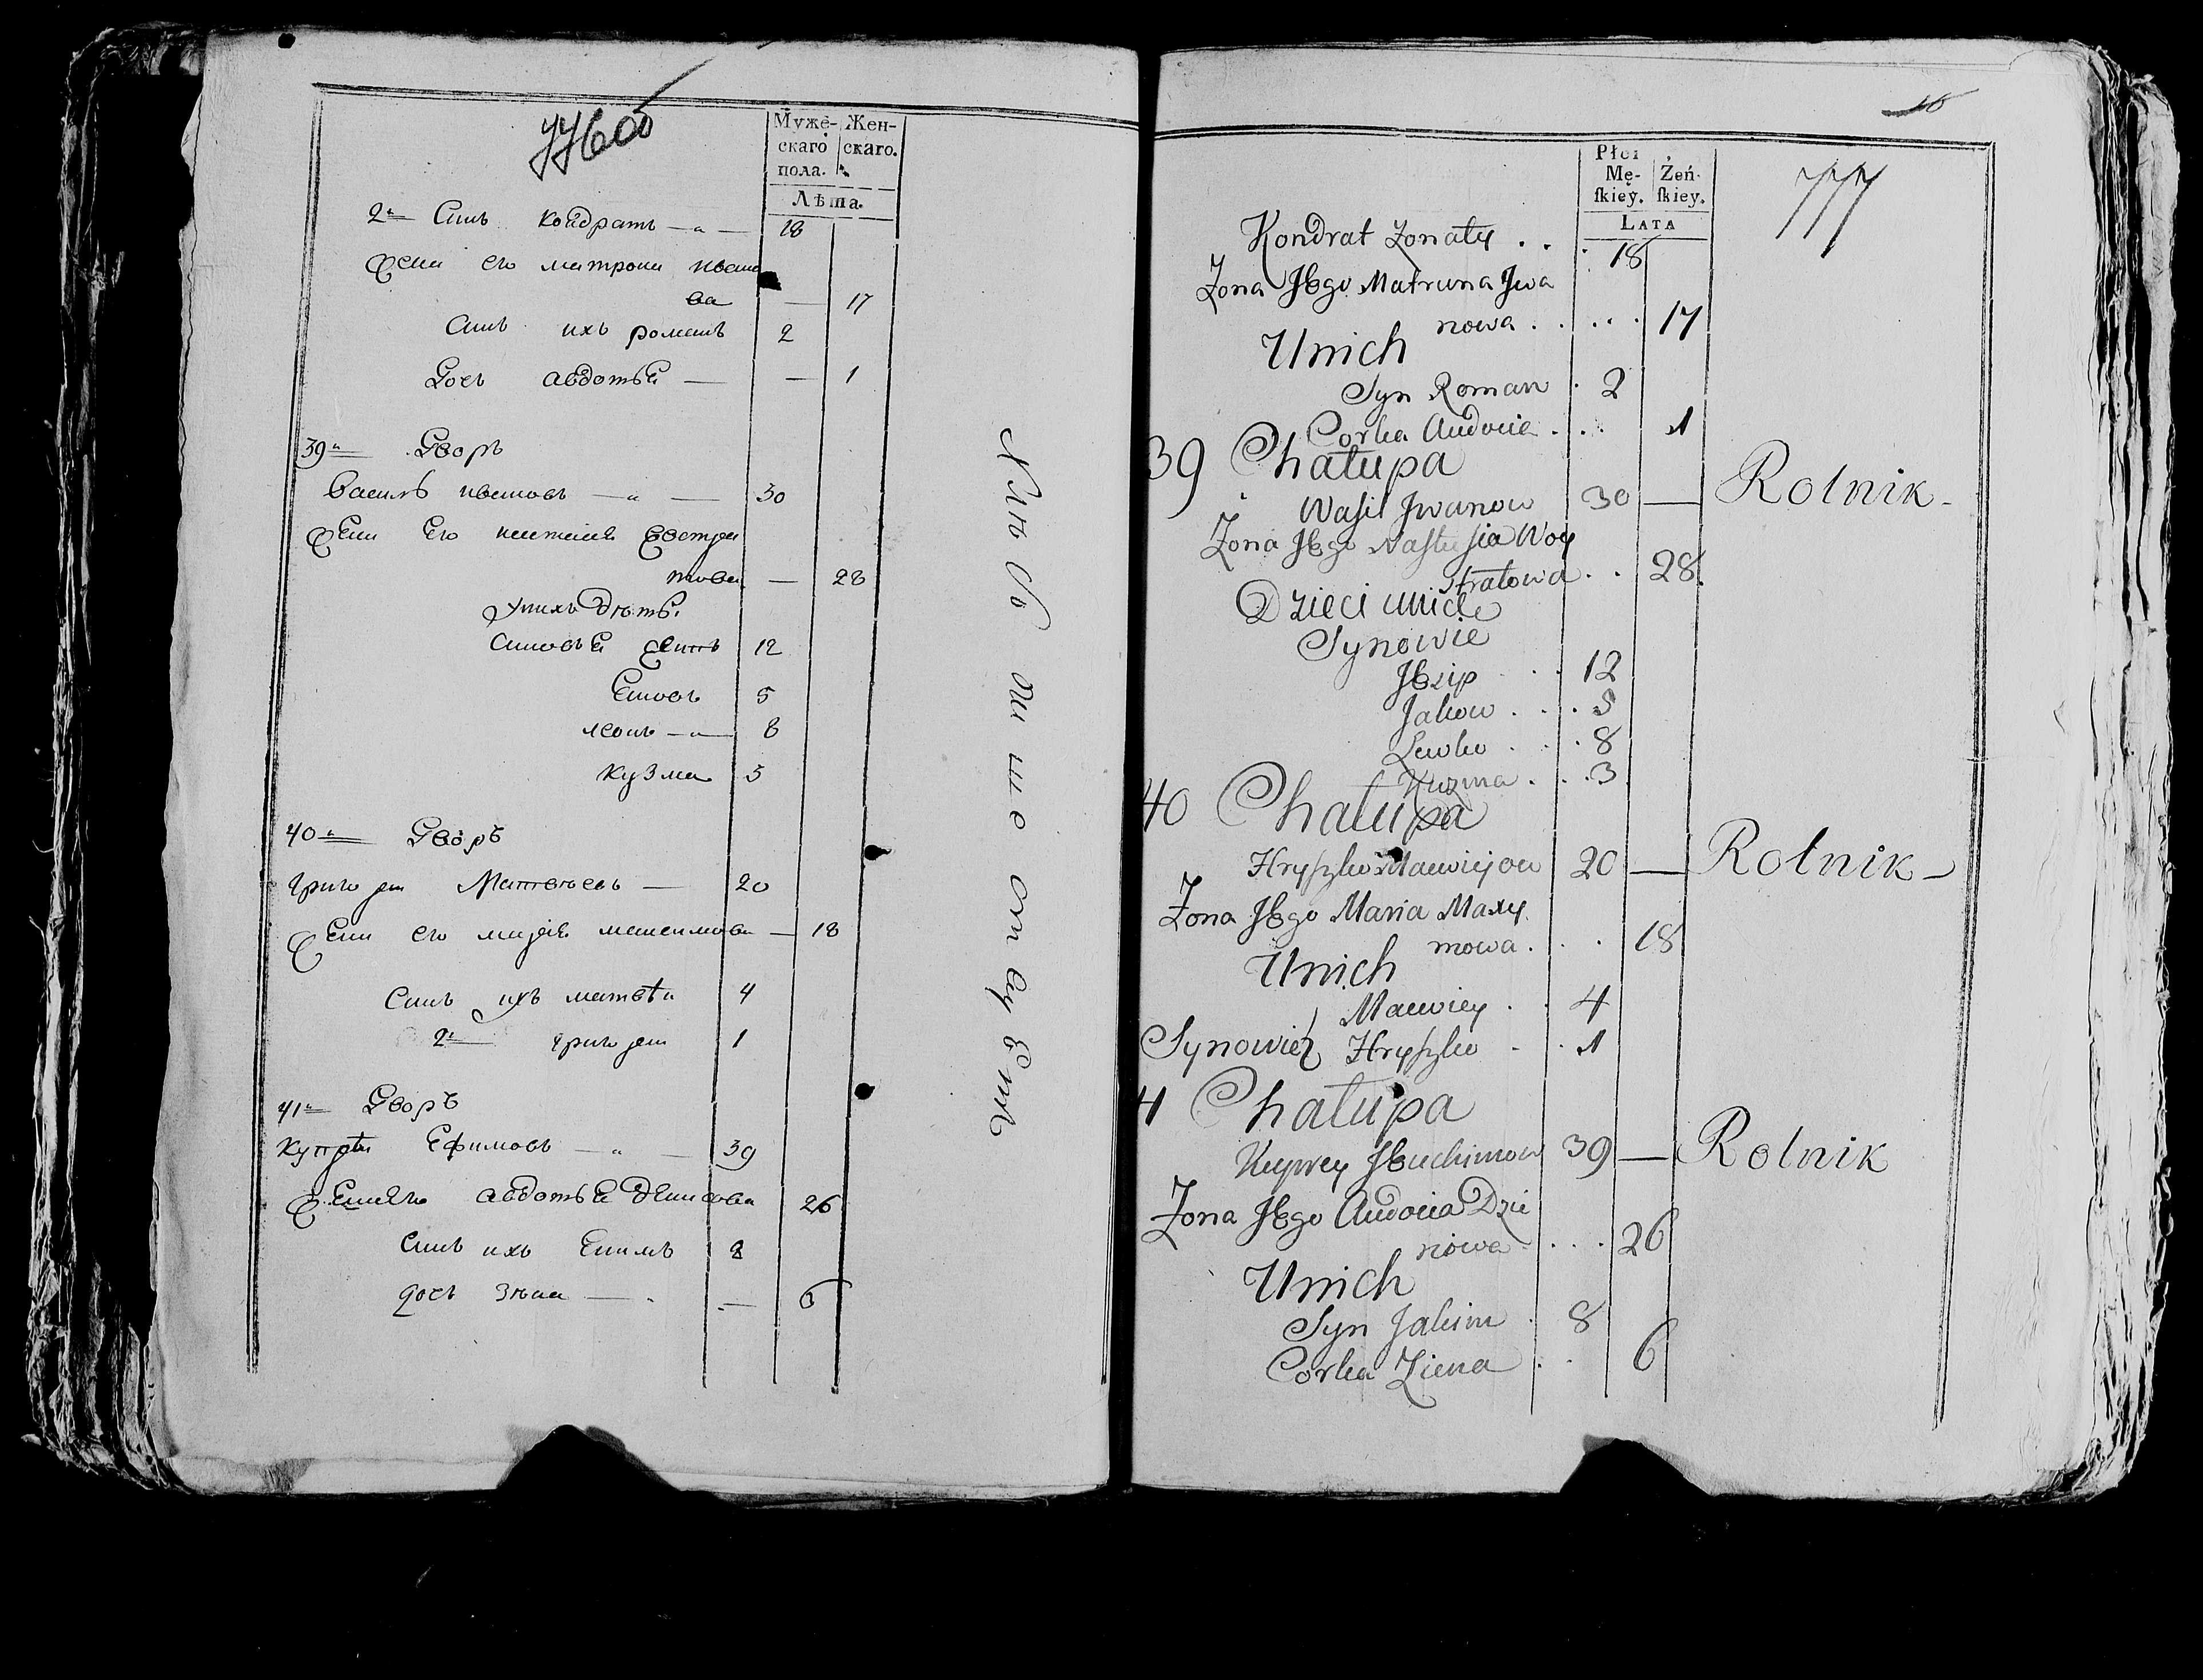 776 об
Мужe- Жен-
скаго скаго.
пола.
Лѣта.
2й Сынъ Кондратъ — 18
Жена его матрона ивано
ва — 17
Сынъ ихъ романъ 2
Дочь авдотья — — 1
39й Дворъ
Василь ивановъ — 30
Жена Его настася Евстра
това — 28
Унихъ дѣти
Сыновья Есипъ 12
Ековъ 5
леонъ — 8
кузма 3
40й Дворъ
григорей Матвеевъ — 20
Жена его марія максимова — 18
Сынъ ихъ матвѣи 4
2й григореи 1
41й Дворъ
купрѣи Ефимовъ — 39
Жена Его авдотья денисова 26
Сынъ ихъ Екимъ 8
дочь зѣна — — 6
16
777
Płci
Mę- Żeń-
ſkiey. ſkiey.
LATA
Kondrat Zonaty . . . 18
Zona Jego Matruna Jwa
nowa . . . . . 17
Unich
Syn Roman . 2
Corka Audocia . . . 1
39 Chałupa
Wasil Jwanow 30 — Rolnik -
Zona Jego Nastusia Woy
stratowa . . 28.
Dzieci unich
Synowie
Jezip . . . 12
Jakow . . . 5
Lewko . . . 8
Kuzma . . . 3
40 Chałupa
Hryszko Maciejow 20 — Rolnik —
Zona Jego Maria Maxy
mowa . . . 18
Unich
Maciey . . 4
Synowie Hryszko - . 1
41 Chałupa
Kuprey Jeuchimow 39 — Rolnik
Zona Jego Audocia Dzie
nowa . . . 26
Unich
Syn Jakim . 8
Corka Ziena . . 6